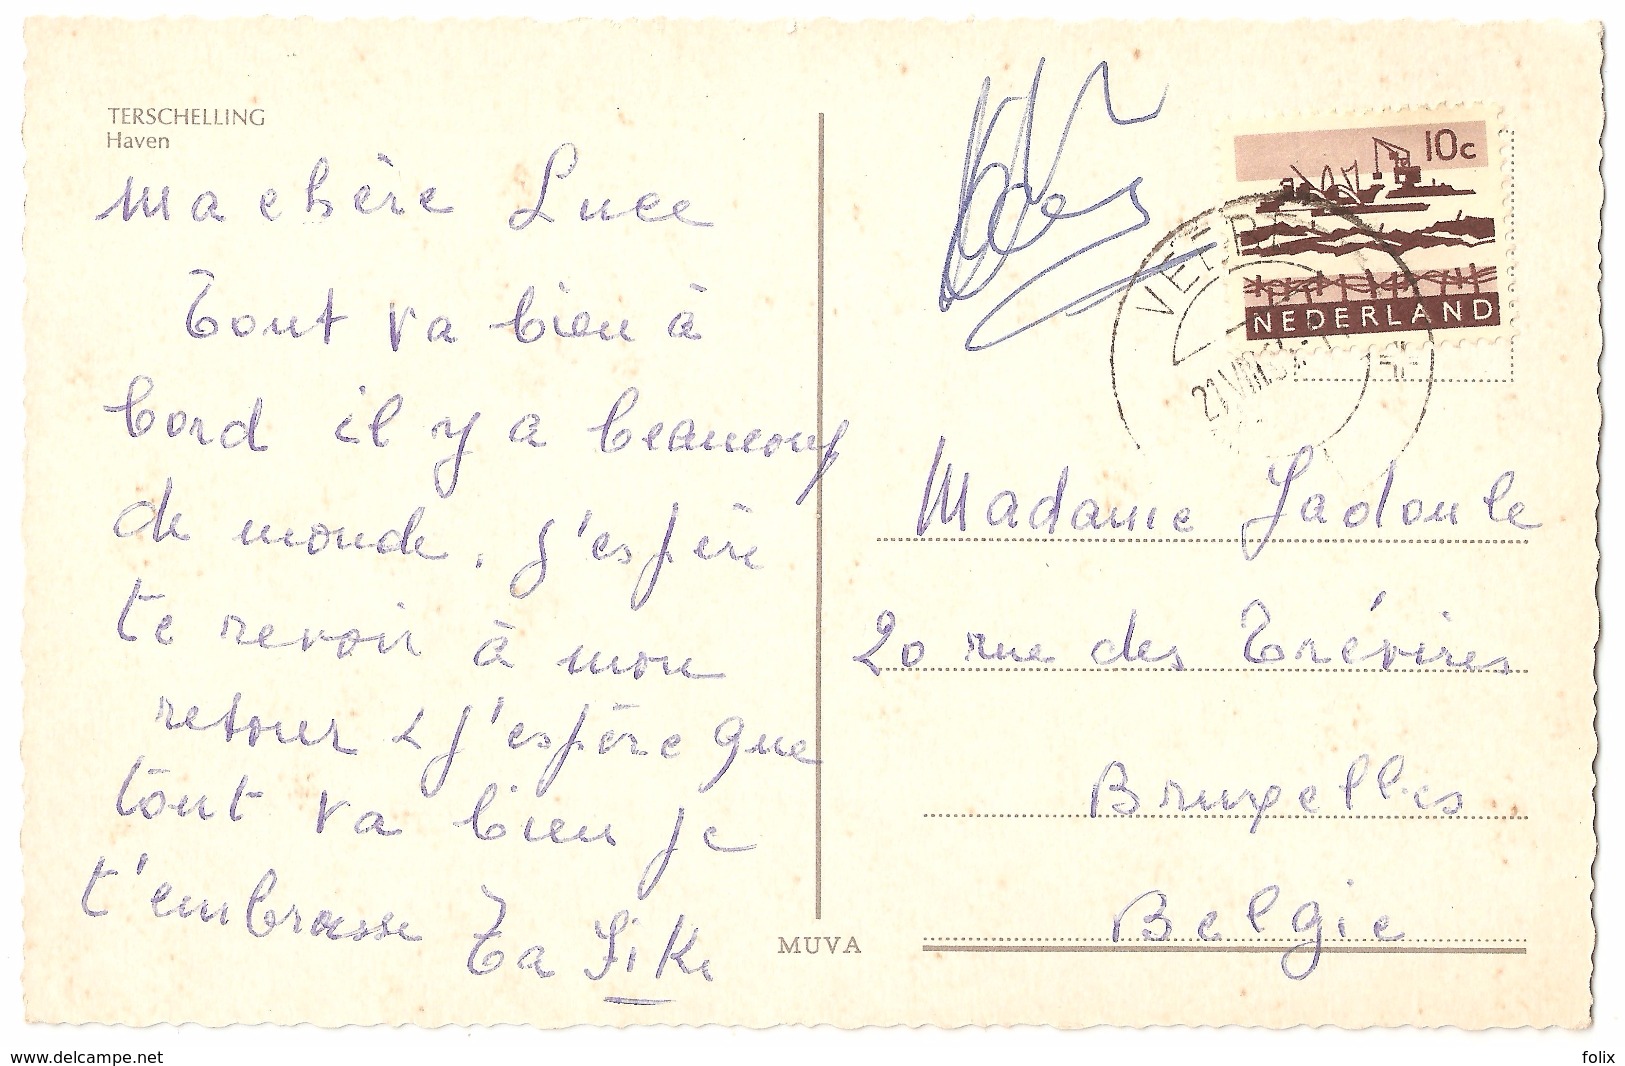 TERSCHELLING
Haven
Ma chère Luce
Tout va bien à
bord il y a beaucoup
de monde. J'espère
te revoir à mon
retour & j'espère que
tout va bien je
t'embrasse Ta Fike
MUVA
10c
NEDERLAND
21.VIII
Madame Jadoule
20 rue des Trévires
Bruxelles
Belgie
www.delcampe.net
folix